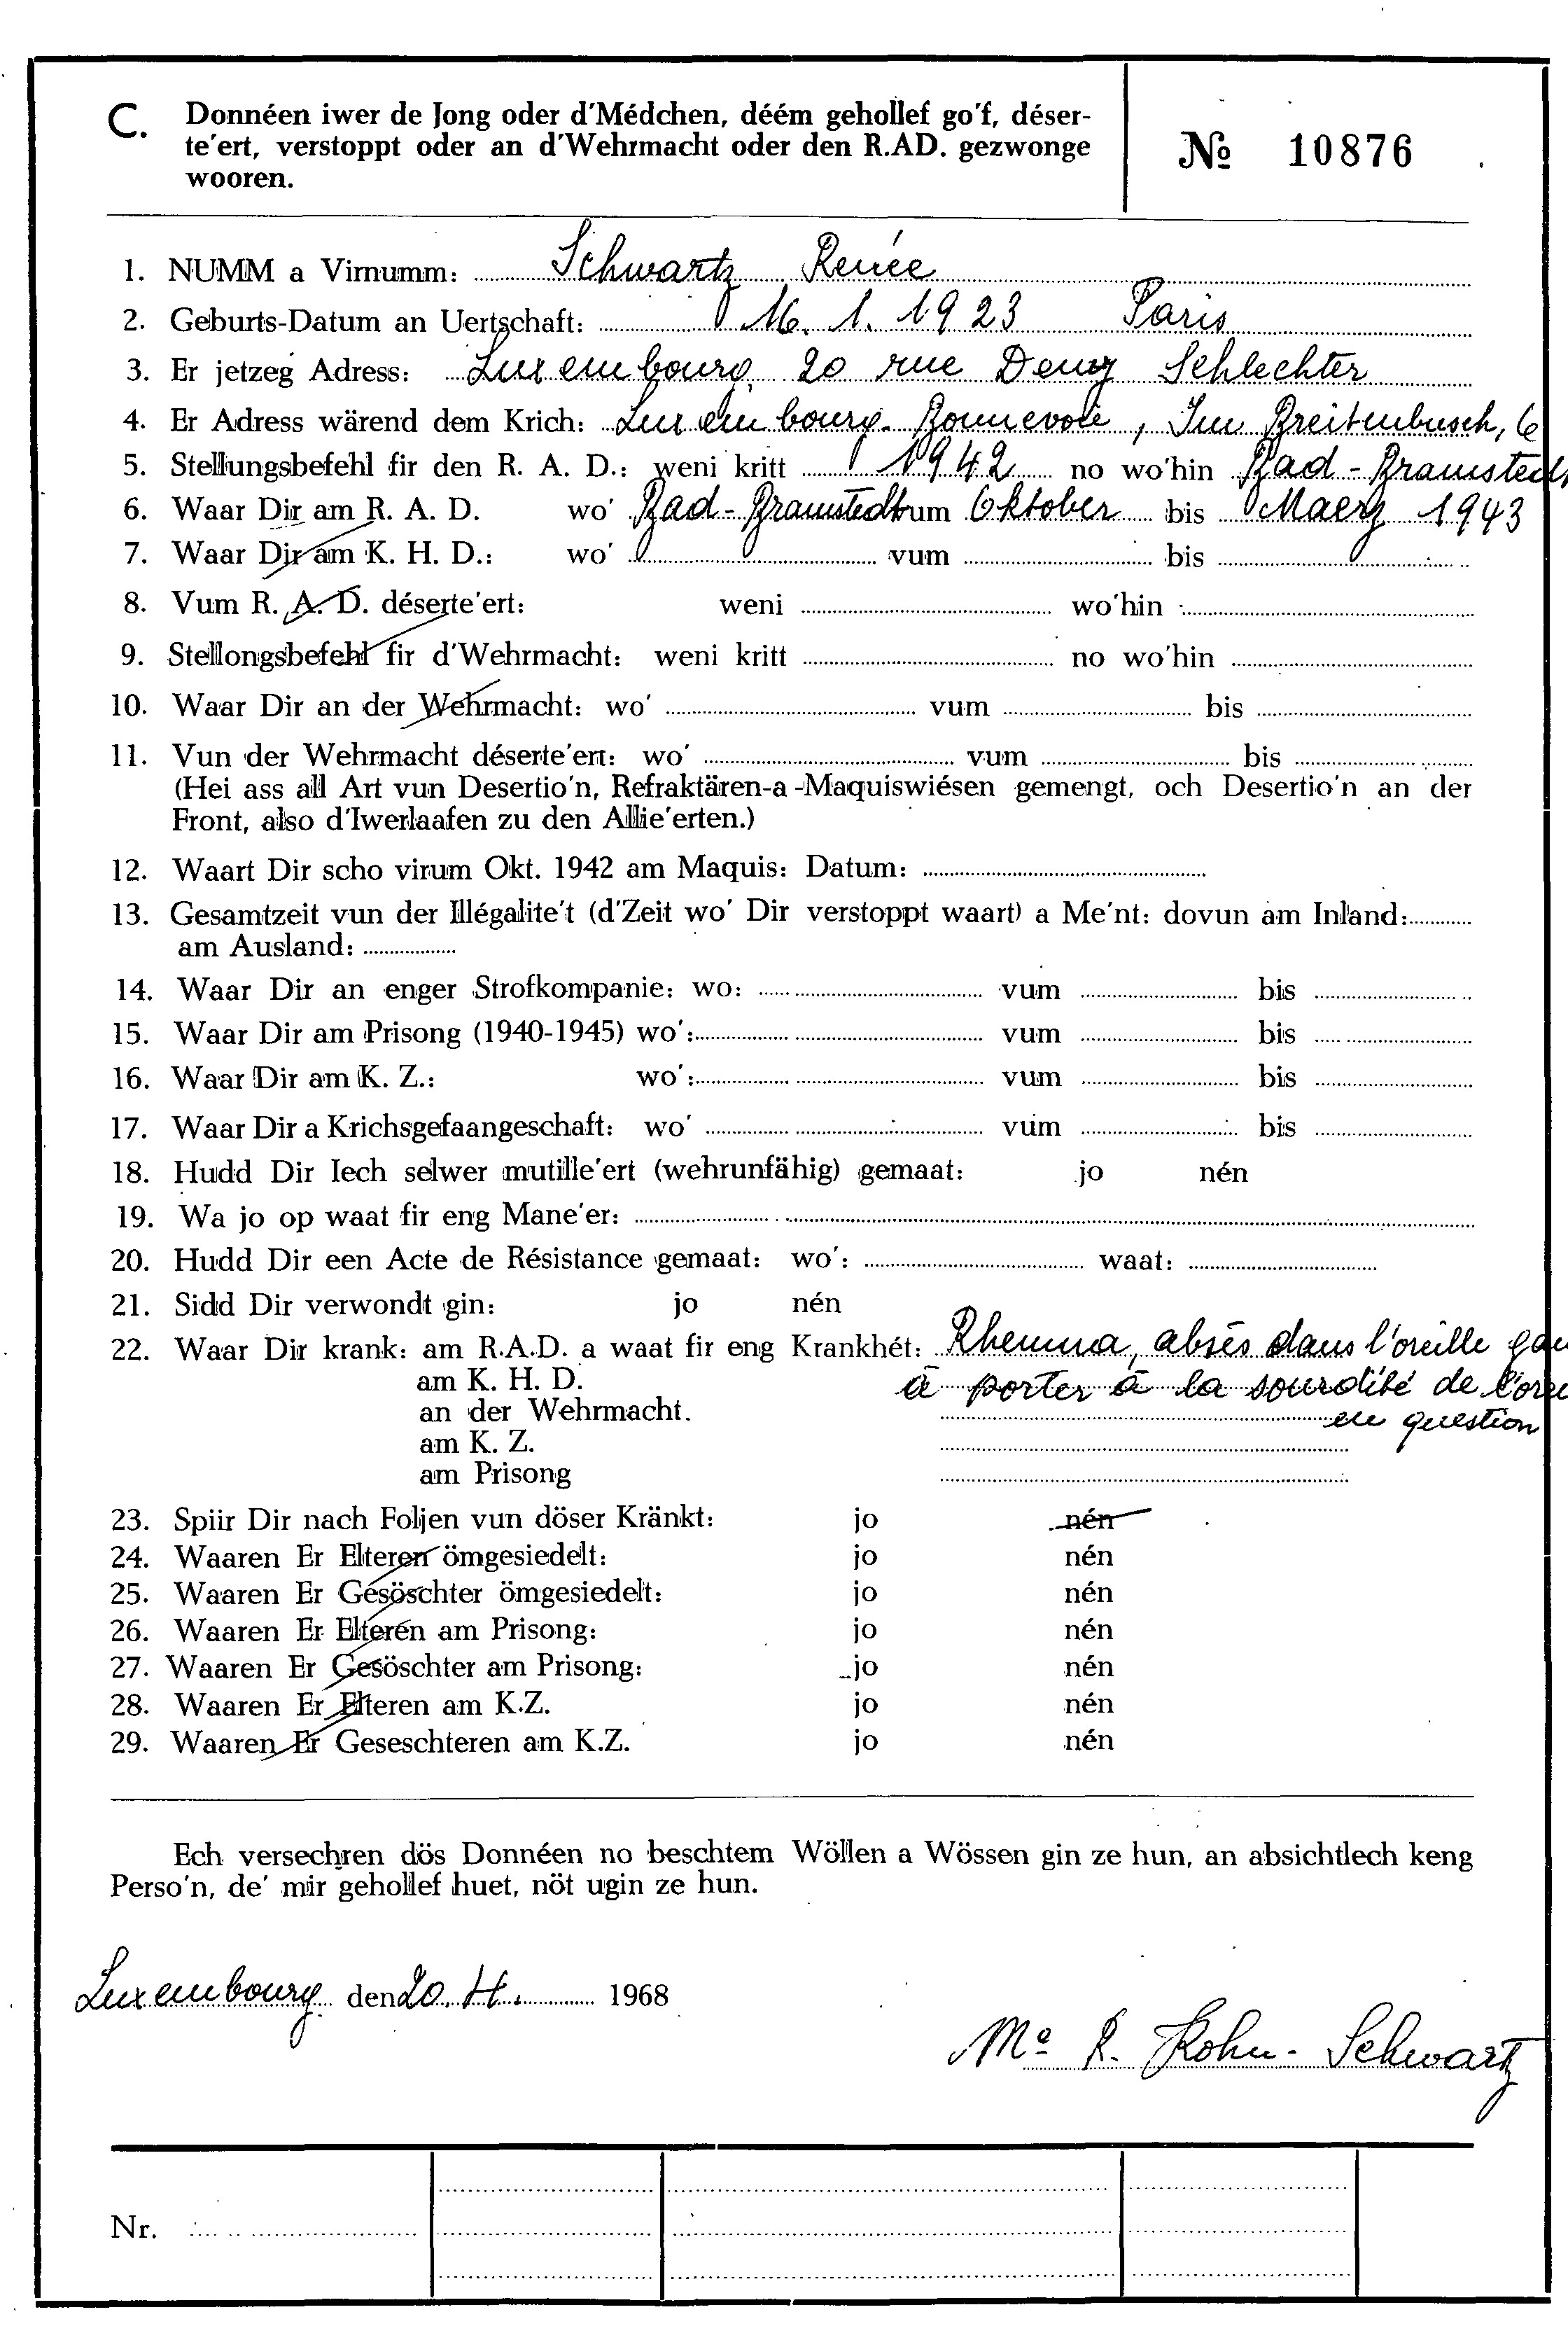 C. Donnéen iwer de Jong oder d'Médchen, déém gehollef go'f, déser-
te'ert, verstoppt oder an d'Wehrmacht oder den R.AD. gezwonge
wooren.
№ 10876
1. NUMM a Virnumm: Schwartz Renée
2. Geburts-Datum an Uertschaft: 16. 1. 1923 Paris
3. Er jetzeg Adress: Luxembourg, 20 rue Demy Schlechter
4. Er Adress wärend dem Krich: Luxembourg-Bonnevoie, Im Breitenbusch, 6
5. Stellungsbefehl fir den R. A. D.: weni kritt 1942 no wo'hin Bad-Bramstedt
6. Waar Dir am R. A. D. wo' Bad-Bramstedt vum Oktober bis Maerz 1943
7. Waar Dir am K. H. D.: wo' vum bis
8. Vum R. A. D. déserte'ert: weni wo'hin
9. Stellongsbefehl fir d'Wehrmacht: weni kritt no wo'hin
10. Waar Dir an der Wehrmacht: wo' vum bis
11. Vun der Wehrmacht déserte'ert: wo' vum bis
(Hei ass all Art vun Desertio'n, Refraktären-a-Maquiswiésen gemengt, och Desertio'n an der
Front, also d'Iwerlaafen zu den Allie'erten.)
12. Waart Dir scho virum Okt. 1942 am Maquis: Datum:
13. Gesamtzeit vun der Illégalite't (d'Zeit wo' Dir verstoppt waart) a Me'nt: dovun am Inland:
am Ausland:
14. Waar Dir an enger Strofkompanie: wo: vum bis
15. Waar Dir am Prisong (1940-1945) wo': vum bis
16. Waar Dir am K. Z.: wo': vum bis
17. Waar Dir a Krichsgefaangeschaft: wo' vum bis
18. Hudd Dir Iech selwer mutille'ert (wehrunfähig) gemaat: jo nén
19. Wa jo op waat fir eng Mane'er:
20. Hudd Dir een Acte de Résistance gemaat: wo': waat:
21. Sidd Dir verwondt gin: jo nén
22. Waar Dir krank: am R.A.D. a waat fir eng Krankhét: Rheuma, absès dans l'oreille
am K. H. D. à porter à la sourdité de
an der Wehrmacht. en question
am K. Z.
am Prisong
23. Spiir Dir nach Foljen vun döser Kränkt: jo nén
24. Waaren Er Elteren ömgesiedelt: jo nén
25. Waaren Er Gesöschter ömgesiedelt: jo nén
26. Waaren Er Elteren am Prisong: jo nén
27. Waaren Er Gesöschter am Prisong: jo nén
28. Waaren Er Elteren am K.Z. jo nén
29. Waaren Er Geseschteren am K.Z. jo nén
Ech versechren dös Donnéen no beschtem Wöllen a Wössen gin ze hun, an absichtlech keng
Perso'n, de' mir gehollef huet, nöt ugin ze hun.
Luxembourg den 20. 4. 1968
Me R. Kohn-Schwartz
Nr.